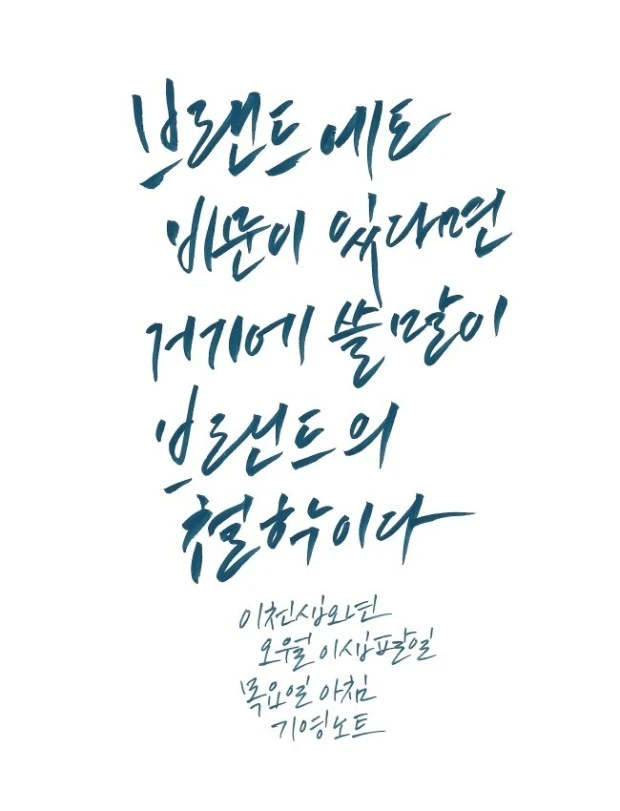 브랜드에도
비문이 있다면
거기에 쓸 말이
브랜드의
철학이다
이천십오년
오월 이십팔일
목요일 아침
기영노트